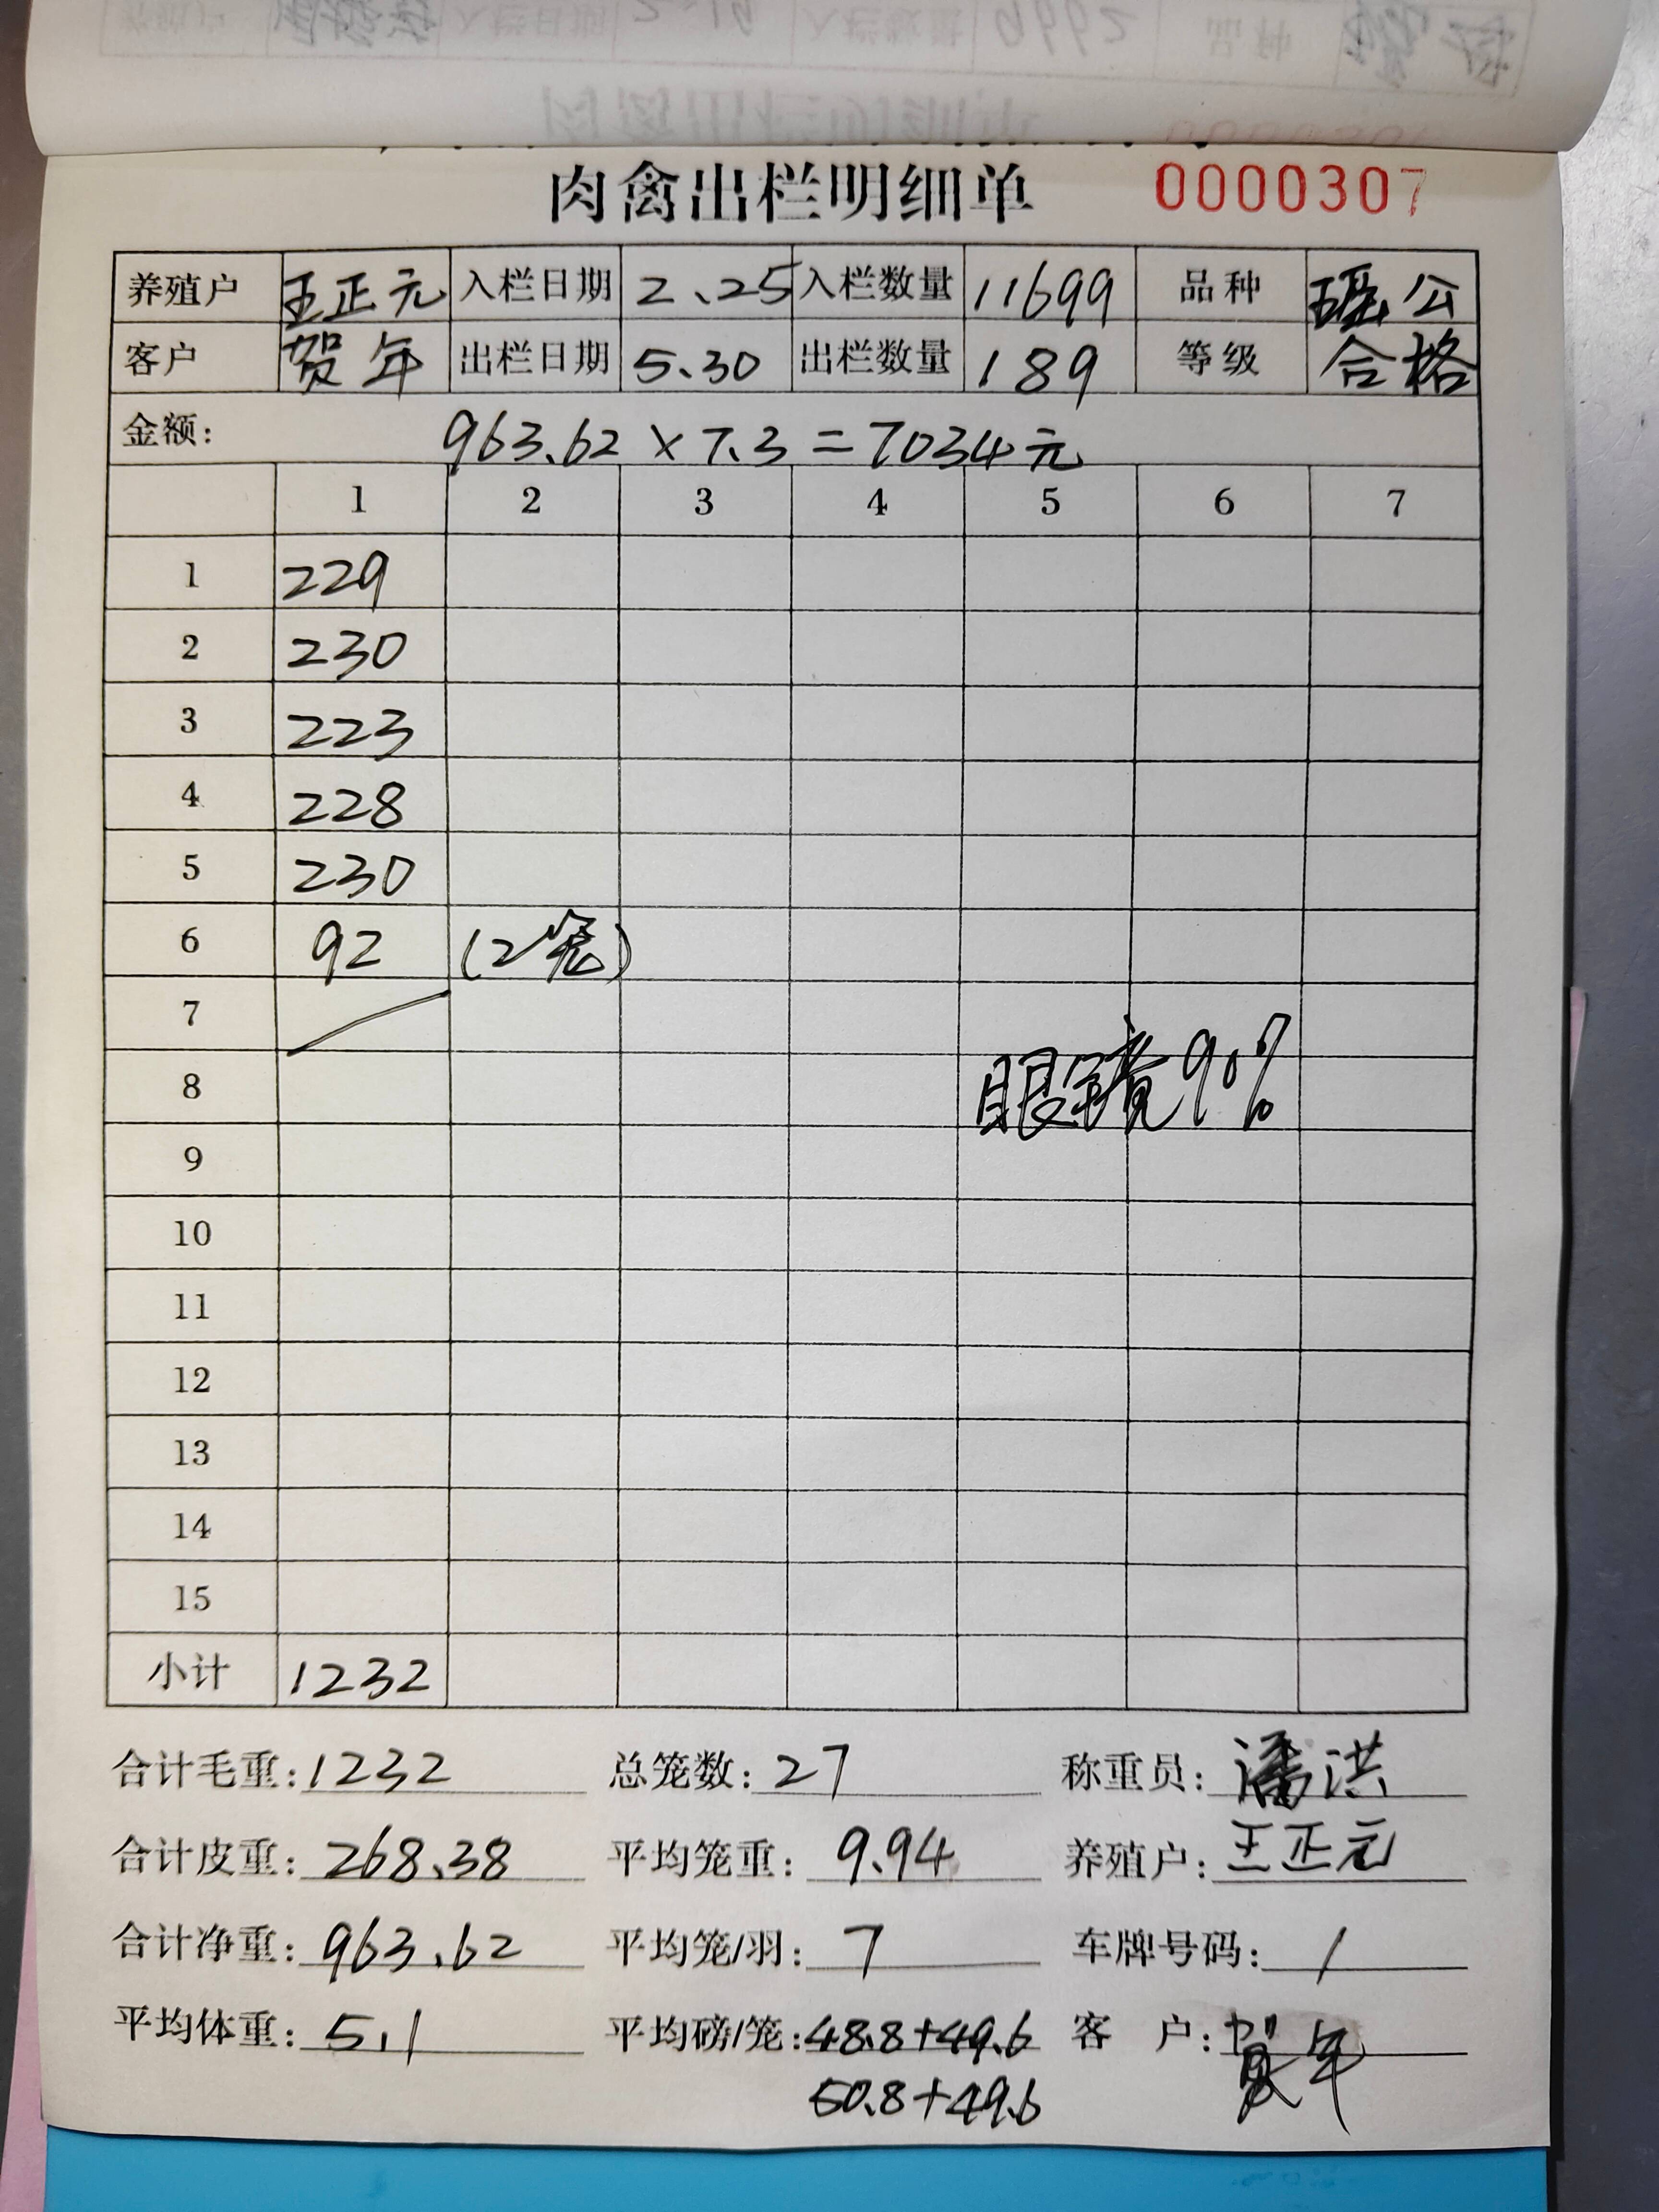 肉禽出栏明细单 0000307
养殖户 王正元 入栏日期 2.25 入栏数量 11699 品种 瑶公
客户 贺年 出栏日期 5.30 出栏数量 189 等级 合格
金额: 963.62×7.3=7034元
1 2 3 4 5 6 7
1 229
2 230
3 223
4 228
5 230
6 92 (2笼)
7
8 眼镜90%
9
10
11
12
13
14
15
小计 1232
合计毛重: 1232 总笼数: 27 称重员: 潘洪
合计皮重: 268.38 平均笼重: 9.94 养殖户: 王正元
合计净重: 963.62 平均笼/羽: 7 车牌号码: /
平均体重: 5.1 平均磅/笼: 48.8+49.6 客 户: 贺年
50.8+49.6